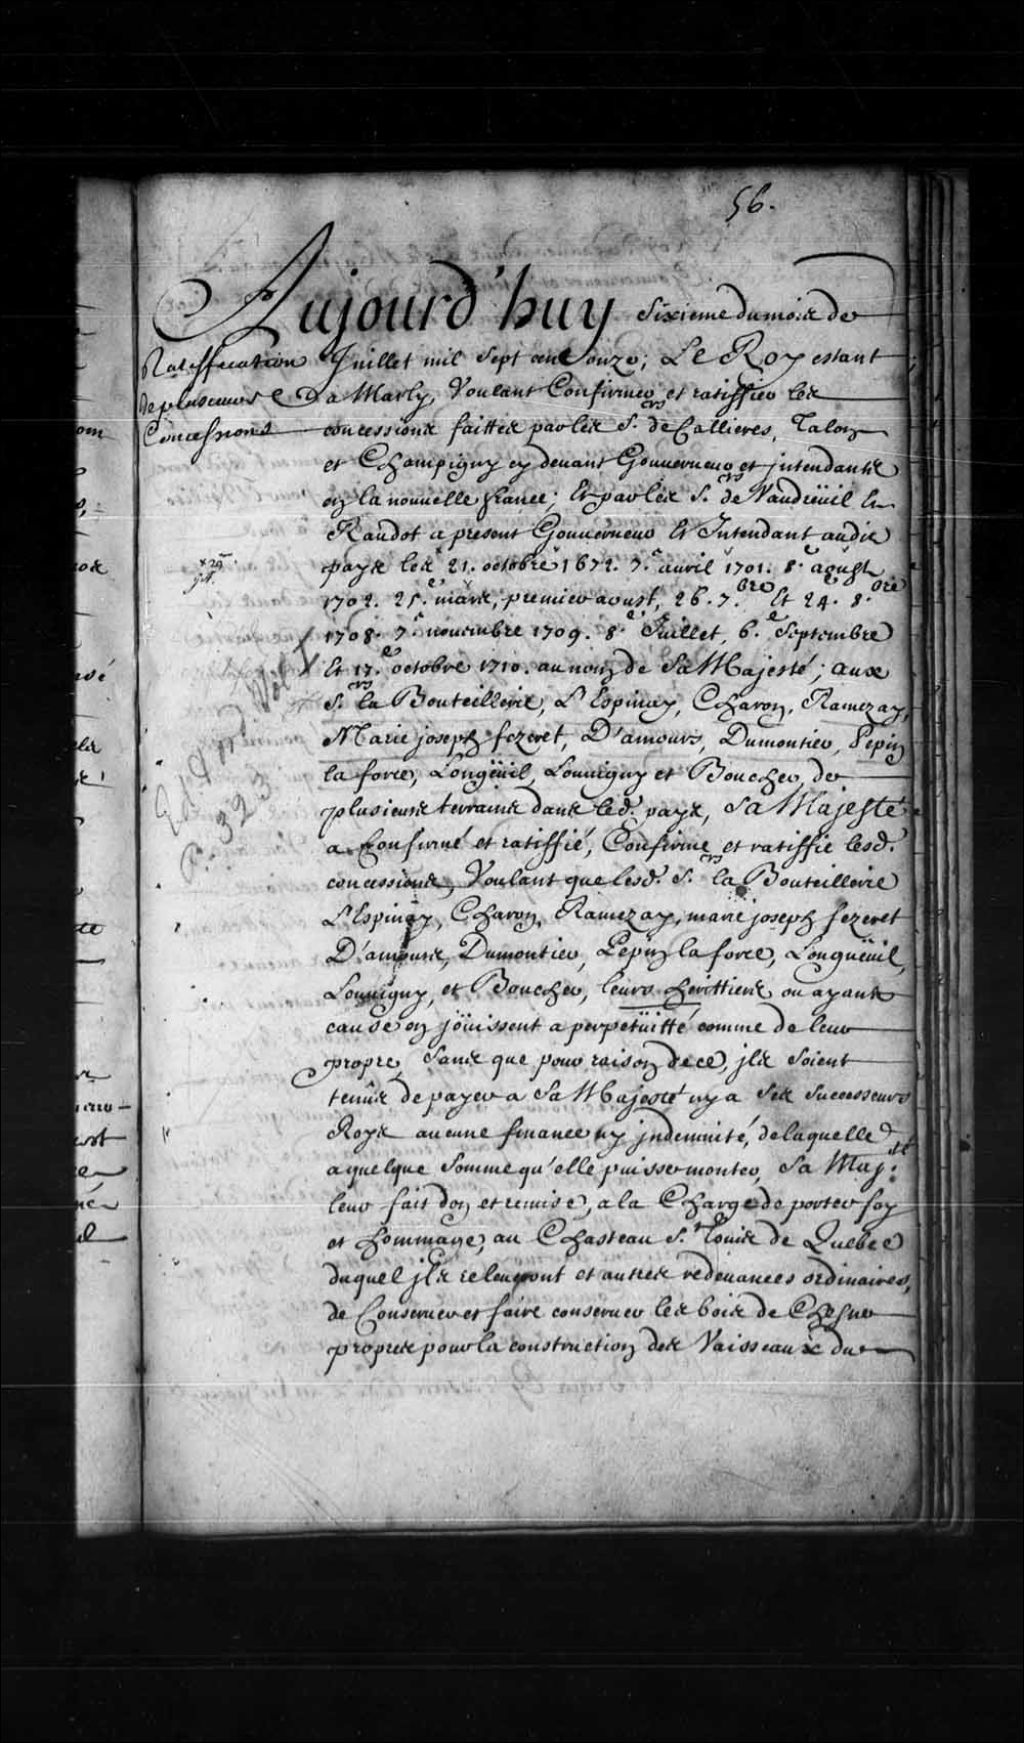 56.
Aujourd'huy Sixieme du mois de
Ratiffication
de plusieurs
Concessions
Juillet mil sept cent onze; Le Roy estant
a Marly, Voulant Confirmer et ratiffier les
concessions faittes par les S.rs de Callieres, Talon
et Champigny cy devant Gouverneur et jntendants
en la nouvelle france; Et par les S.rs de Vaudreüil Et
Raudot a present Gouverneur Et Intendant audit
pays les 21. octobre 1672. 7.e avril 1701. 8.e aoust
1702. 25.e mars, premier aoust, 26. 7.bre Et 24.e 8.bre
1708. 7.e novembre 1709. 8.e Juillet, 6.e Septembre
Et 17.e octobre 1710. au nom de Sa Majesté; aux
S.rs la Bouteillerie, L'Espinay, Charon, Ramezay,
Marie joseph fezeret, D'amours, Dumontier, Pepin
la force, Longüeil, Louvigny et Boucher, de
plusieurs terrains dans led. pays, Sa Majesté
a Confirmé et ratiffié, Confirme et ratiffie lesd.
concessions, Voulant que lesd. S.rs la Bouteillerie
L'Espinay, Charon, Ramezay, marie joseph fezeret
D'amours, Dumontier, Pepin la force, Longueüil,
Louvigny, et Boucher, leurs heritiers ou ayans
cause en joüissent a perpetüitté comme de leur
propre, Sans que pour raison de ce, jls soient
tenûs de payer a Sa Majesté ny a ses successeurs
Roys aucune finance ny jndemnité, de laquelle
a quelque somme qu'elle puisse monter, Sa Maj.té
leur fait don et remise, a la Charge de porter foy
et hommage, au Chasteau S.t Louis de Quebec
duquel jls releveront et autres redevances ordinaires,
de Conserver et faire conserver les bois de Chesne
propres pour la construction des Vaisseaux du
P. 323